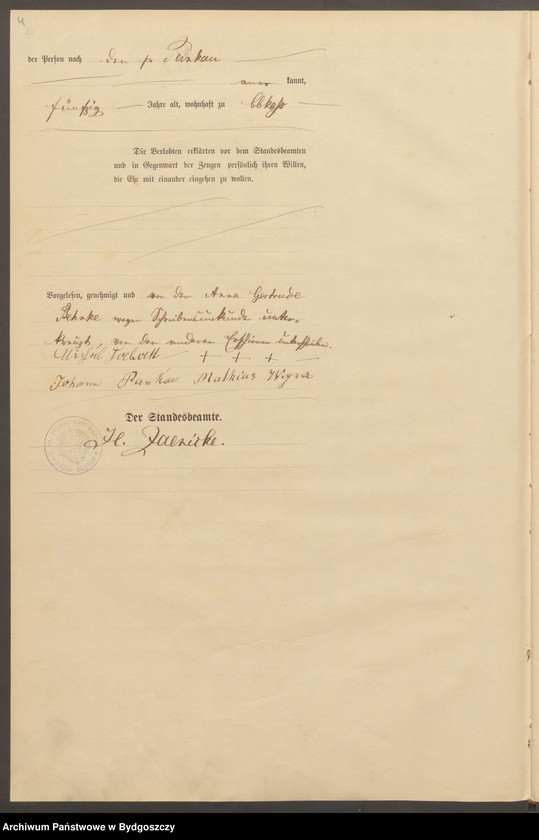 4
der Person nach den p Pankau
aner kannt,
fünfzig Jahre alt, wohnhaft zu
Die Verlobten erklärten vor dem Standesbeamten
und in Gegenwart der Zeugen persönlich ihren Willen,
die Ehe mit einander eingehen zu wollen.
Vorgelesen, genehmigt und von der Anna Gertrude
wegen Schreibensunkunde unter-
kreuzt, von den anderen Erschienen unterschrieben.
Michal + + +
Johann Pankau Mathias
Der Standesbeamte.
H. Jaenicke.
Archiwum Państwowe w Bydgoszczy